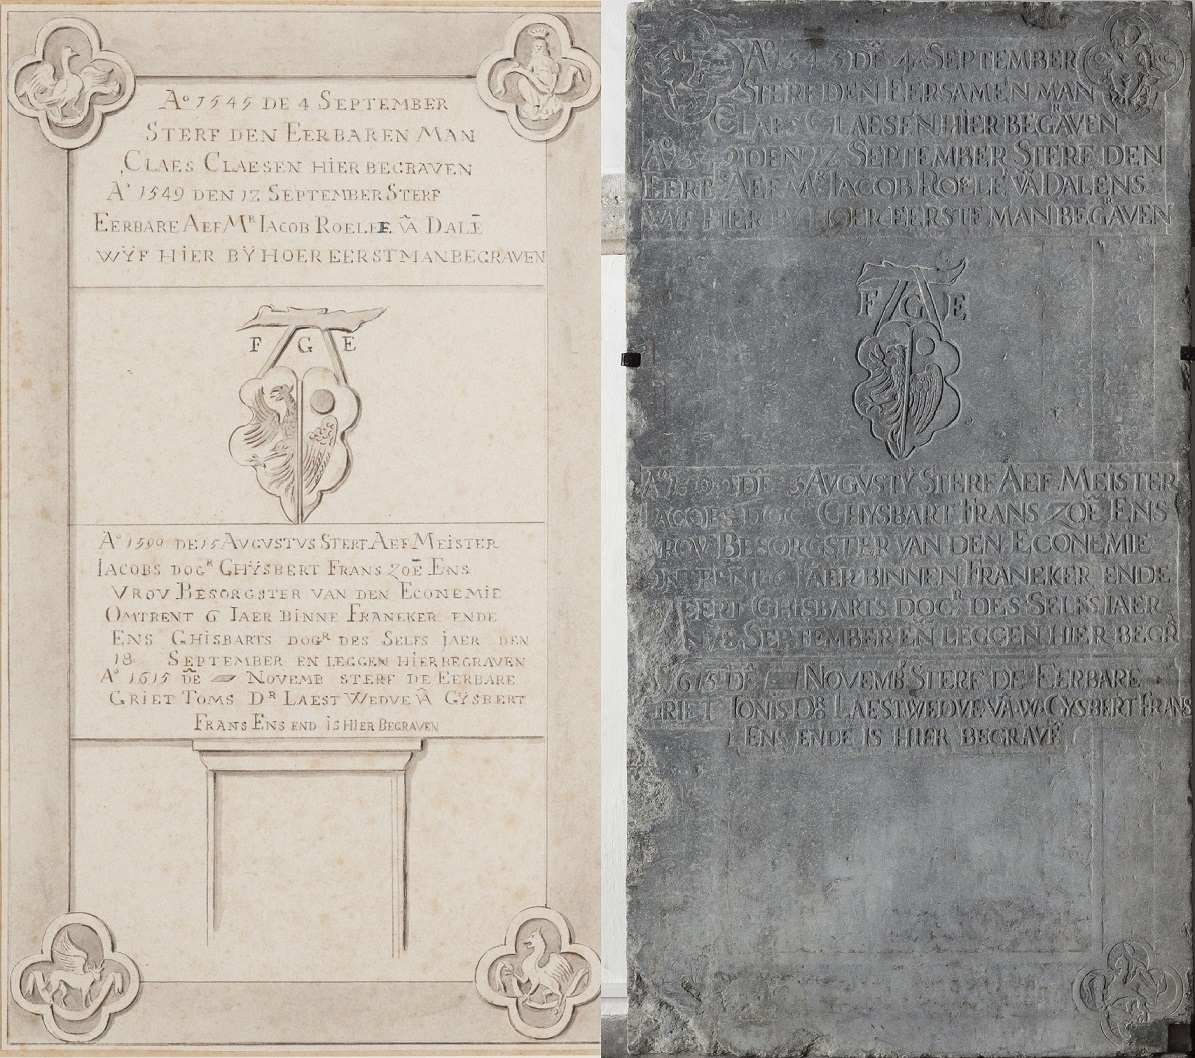 Aº 1545 DE 4 SEPTEMBER
STERF DEN EERBAREN MAN
CLAES CLAESEN HIER BEGRAVEN
Aº 1549 DEN 12 SEPTEMBER STERF
EERBARE AEF Mᴿ IACOB ROELEE. VÃ DALĒ
WŸF HIER BŸ HOER EERST MAN BEGRAVEN
F G E
Aº 1590 DE 15 AVGVSTVS STERT AEF MEISTER
IACOBS DOGᴿ GHŸSBERT FRANS ZOĒ ENS
VROV BESORGSTER VAN DEN ECONEMIE
OMTRENT 6 IAER BINNE FRANEKER ENDE
ENS GHISBARTS DOGᴿ DES SELFS JAER DEN
18 SEPTEMBER EN LEGGEN HIER BEGRAVEN
Aº 1615 DE NOVEMB STERF DE EERBARE
GRIET TOMS Dᴿ LAEST WEDVE VÃ GŸSBERT
FRANS ENS END IS HIER BEGRAVEN
Aº DĒ 4 SEPTEMBER
STERF DEN EERSAMEN MAN
CLAES CLAESEN HIER BEGRAVEN
DEN 12 SEPTEMBER STERF DEN
EERB AEF Mᴿ IACOB ROELE VÃ DALENS
WYF HIER BY HOER EERSTE MAN BEGRAVEN
F G E
Aº DĒ 5 AVGVSTŸ STERF AEF MEISTER
IACOBS DOG GHYSBART FRANS ZOĒ ENS
VROV BESORGSTER VAN DEN ECONEMIE
ONTRENT 6 IAER BINNEN FRANEKER ENDE
GHISBARTS DOGᴿ DES SELFS IAER
SEPTEMBER EÑ LEGGEN HIER BEGR
1615 DĒ NOVEMB STERF DE EERBARE
GRIET IONIS Dᴿ LAEST WEDVE VÃ W. GYSBERT FRANS
ENS ENDE IS HIER BEGRAVĒ